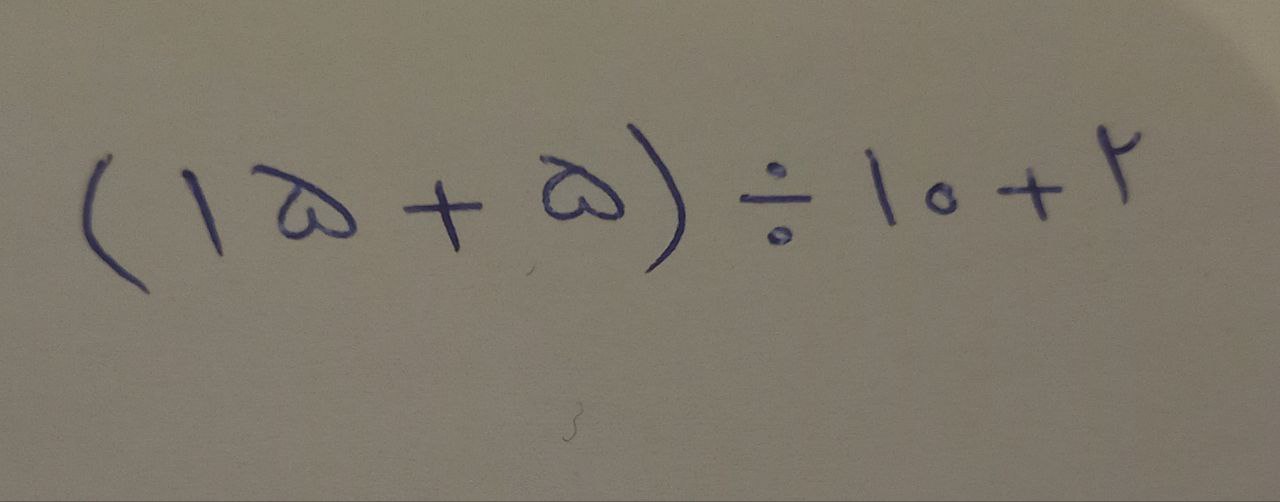 (۱۵ + ۵) ÷ ۱۰ + ۲